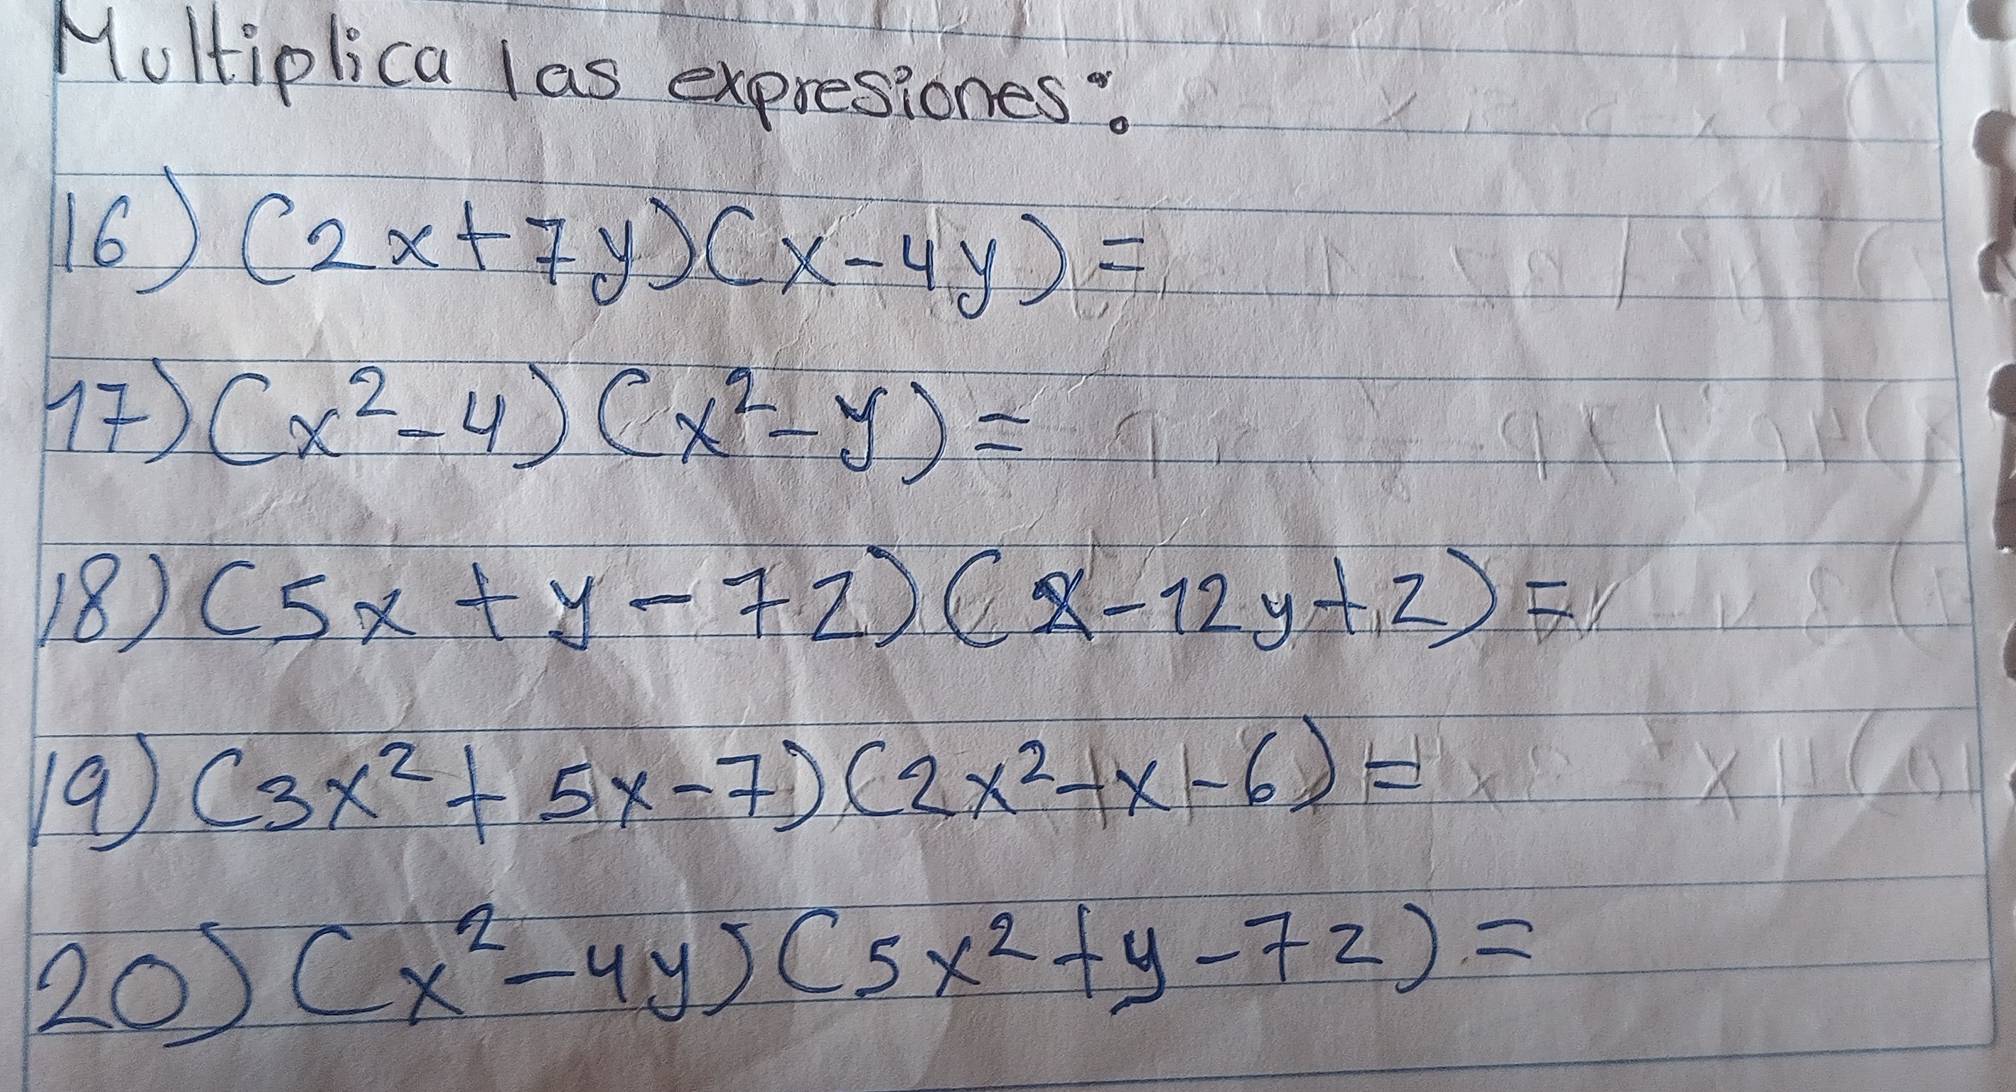 Multiplica las expresiones:
16) (2x+7y)(x-4y)=
17) (x²-4)(x²-y)=
18) (5x+y-7z)(x-12y+z)=
19) (3x²+5x-7)(2x²-x-6)=
20) (x²-4y)(5x²+y-7z)=